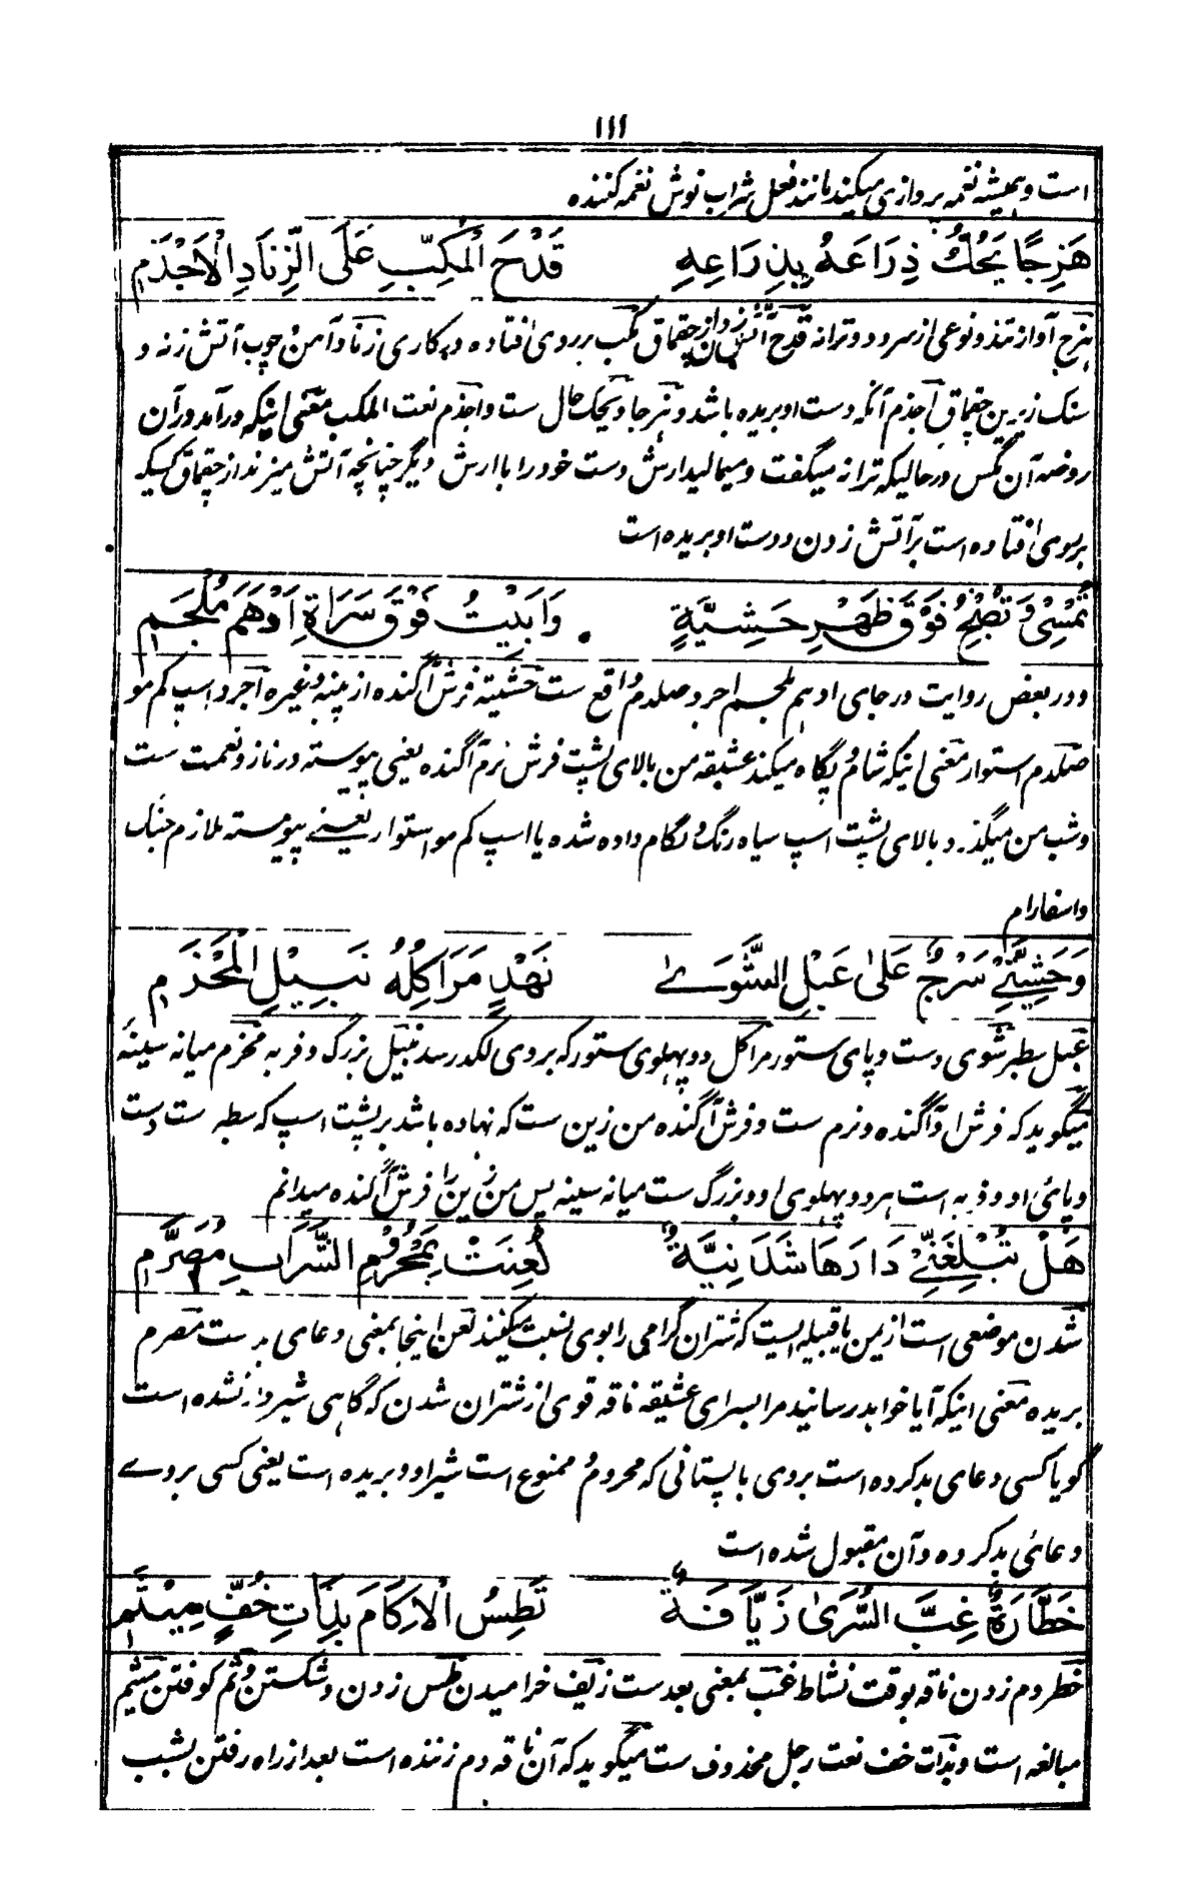 ۱۱۱
است و همیشه نغمه پردازی میکند مانند فعل شراب نوش نغمه کننده
هَزِجًا يَحُكُّ ذِرَاعَهُ بِذِرَاعِهِ قَدْحَ الْمُكِبِّ عَلَى الزِّنَادِ الْاَجْذَمِ
هزج آواز تند و نوعی از سرود و ترانه قدح آتش زدن از چقماق مکب بر روی افتاده در کاری زناد آهن و چوب آتش زنه و
سنگ زیرین چقماق اجذم آنکه دست او بریده باشد و هزجا و یحک حال ست و اجذم نعت المکب معنی اینکه درآمد در آن
روضه آن مگس در حالیکه ترانه میگفت و میمالید ارش دست خود را با ارش دیگر چنانچه آتش میزند از چقماق کسیکه
بروی افتاده است بر آتش زدن و دست او بریده است
تُمْسِىْ وَتُصْبِحُ فَوْقَ ظَهْرِ حَشِيَّةٍ وَاَبَيْتُ فَوْقَ سَرَاةِ اَدْهَمَ مُلْجَمِ
و در بعض روایت در جای ادهم ملجم اجرد صلدم واقع ست حشیته فرش آگنده از پنبه و غیره اجرد اسپ کم مو
صلدم استوار معنی اینکه شام و پگاه میکند عشیقه من بالای پشت فرش نرم آگنده یعنی پیوسته در ناز و نعمت ست
و شب من میگذرد بالای پشت اسپ سیاه رنگ و لگام داده شده یا اسپ کم مو استوار یعنے پیوسته ملازم جنگ
و اسفارام
وَحَشِيَّتِےْ سَرْجٌ عَلٰى عَبْلِ الشَّوٰے نَهْدٍ مَرَاكِلُهُ نَبِيْلِ الْمَحْزَمِ
عبل سطبر شوی دست و پای ستور مراکل دو پهلوی ستور که بروی لکد رسد نبیل بزرگ و فربه محزم میانه سینه
میگوید که فرش او آگنده و نرم ست و فرش آگنده من زین ست که نهاده باشد بر پشت اسپ که سطبر ست دست
و پای او و فربه است هر دو پهلوی او و بزرگ ست میانه سینه پس من زین را فرش آگنده میدانم
هَلْ تُبْلِغَنِّےْ دَارَهَا شَدَنِيَّةٌ لُعِنَتْ بِمَحْرُوْمِ الشَّرَابِ مُصَرَّمِ
شدن موضعی است از یمن یا قبیله ایست که شتران گرامی را بوی نسبت میکنند لعن اینجا بمعنی دعای بد ست مصرم
بریده معنی اینکه آیا خواهد رسانید مرا بسرای عشیقه ناقه قوی از شتران شدن که گاهی شیردار نشده است
گویا کسی دعای بد کرده است بروی با پستانی که محروم و ممنوع است شیر او و بریده است یعنی کسی بروے
دعائی بد کرده و آن مقبول شده است
خَطَّارَةٌ غِبَّ السُّرٰى زَيَّافَةٌ تَطِسُ الْاِكَامَ بِذَاتِ خُفٍّ مِيْثَمِ
خطر دم زدن ناقه بوقت نشاط غب بمعنی بعد ست زیف خرامیدن طس زدن و شکستن وثم کوفتن میثم
مبالغه است و بذات خف نعت رجل محذوف ست میگوید که آن ناقه دم زننده است بعد از راه رفتن بشب